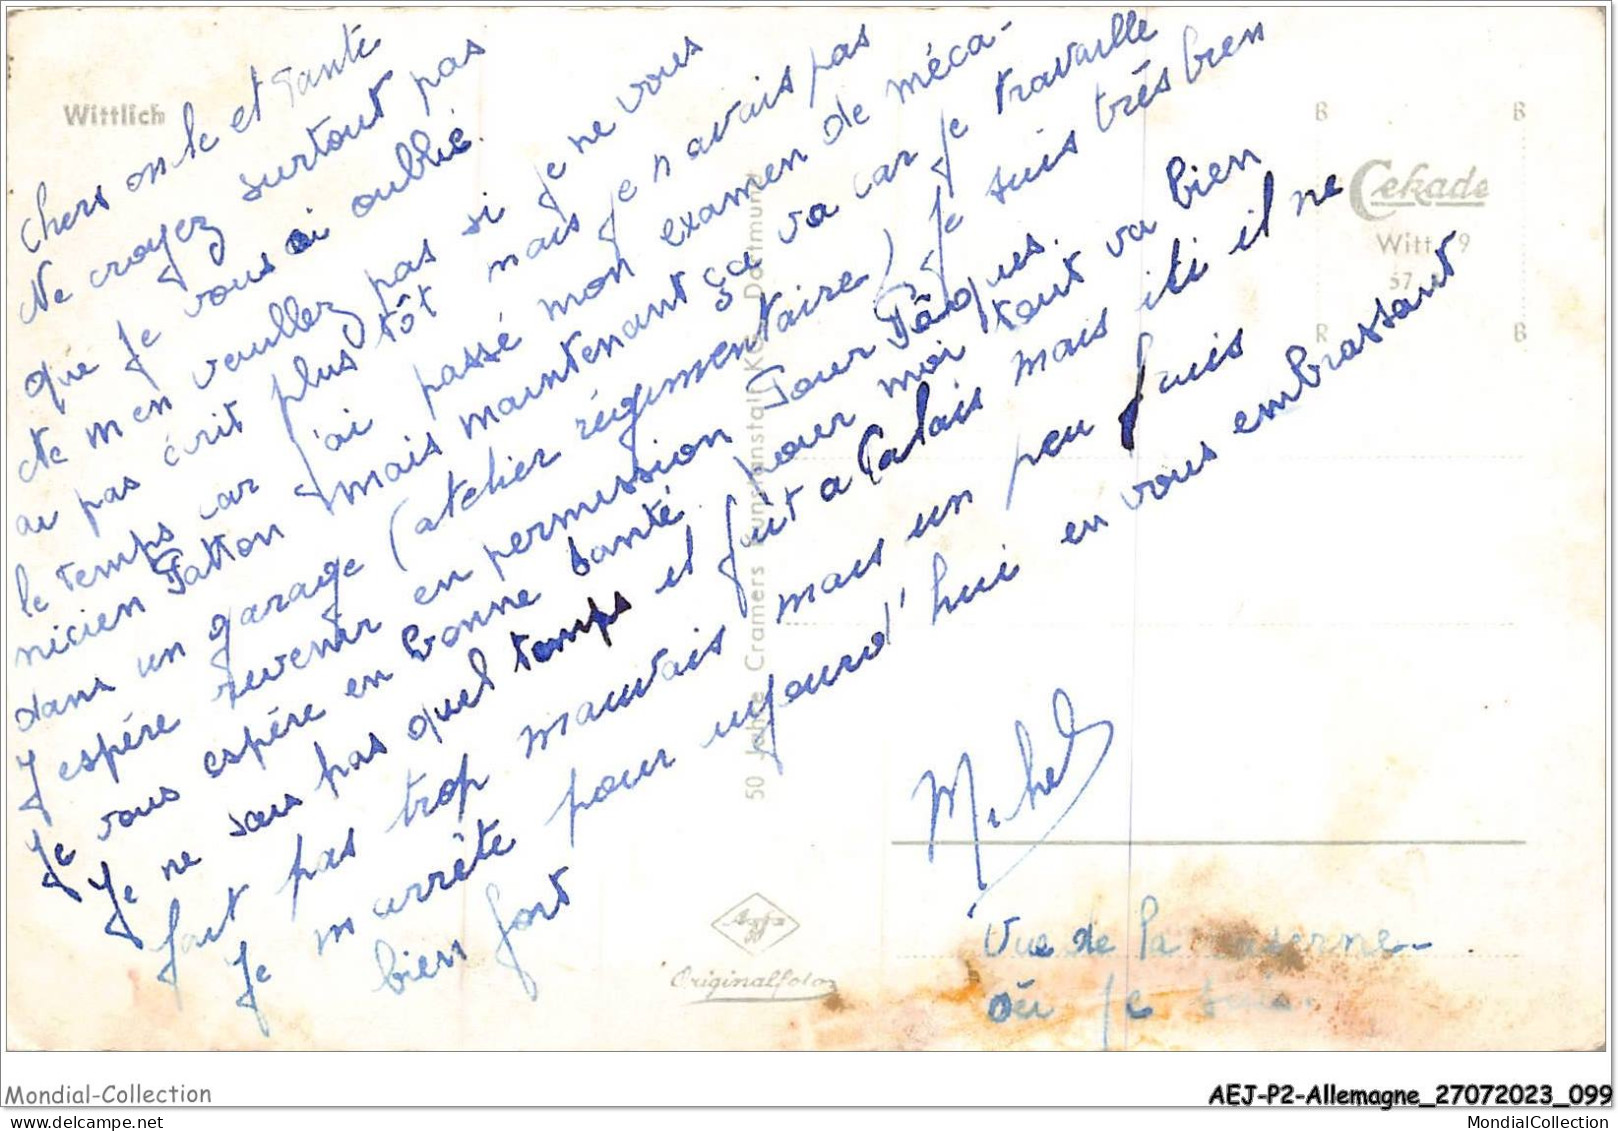 Wittlich
Chers oncle et Tante
Ne croyez surtout pas
que je vous ai oublié.
Ne m'en veuillez pas si je ne vous
ai pas écrit plus tôt mais je n'avais pas
le temps car j'ai passé mon examen de méca-
nicien Patton mais maintenant ça va car je travaille
dans un garage (atelier régimentaire) je suis très bien
J'espère revenir en permission Pour Pâques.
Je vous espère en bonne santé. pour moi tout va bien
Je ne sais pas quel temps il fait a Calais mais ici il ne
fait pas trop mauvais mais un peu frais
Je m'arrête pour aujourd'hui en vous embrassant
bien fort
Michel
Vue de la caserne
où je suis.
50 Jahre Cramers Kunstanstalt KG. Dortmund
Cekade
Witt. 9
57
B B
R B
Agfa
Originalfoto
Mondial-Collection
AEJ-P2-Allemagne_27072023_099
MondialCollection.com